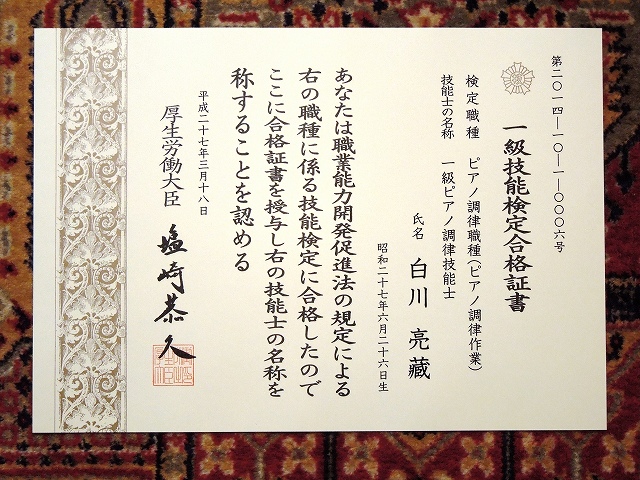 第二〇一四―一〇―一―〇〇〇六号
一級技能検定合格証書
検定職種 ピアノ調律職種(ピアノ調律作業)
技能士の名称 一級ピアノ調律技能士
氏名 白川 亮藏
昭和二十七年六月二十六日生
あなたは職業能力開発促進法の規定による
右の職種に係る技能検定に合格したので
ここに合格証書を授与し右の技能士の名称を
称することを認める
平成二十七年三月十八日
厚生労働大臣 塩崎恭久